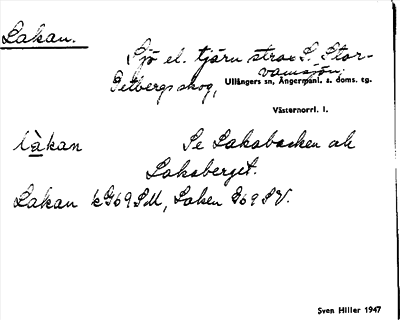 Lakan.
Sjö el. tjärn strax S. Stor-
vamsjön,
Petbergsskog, Ullångers sn, Ångermanl. s. doms. tg.
Västernorrl. l.
làkan Se Lakabacken och
Lakaberget.
Lakan kG69SM, Laken G69SV.
Sven Hiller 1947